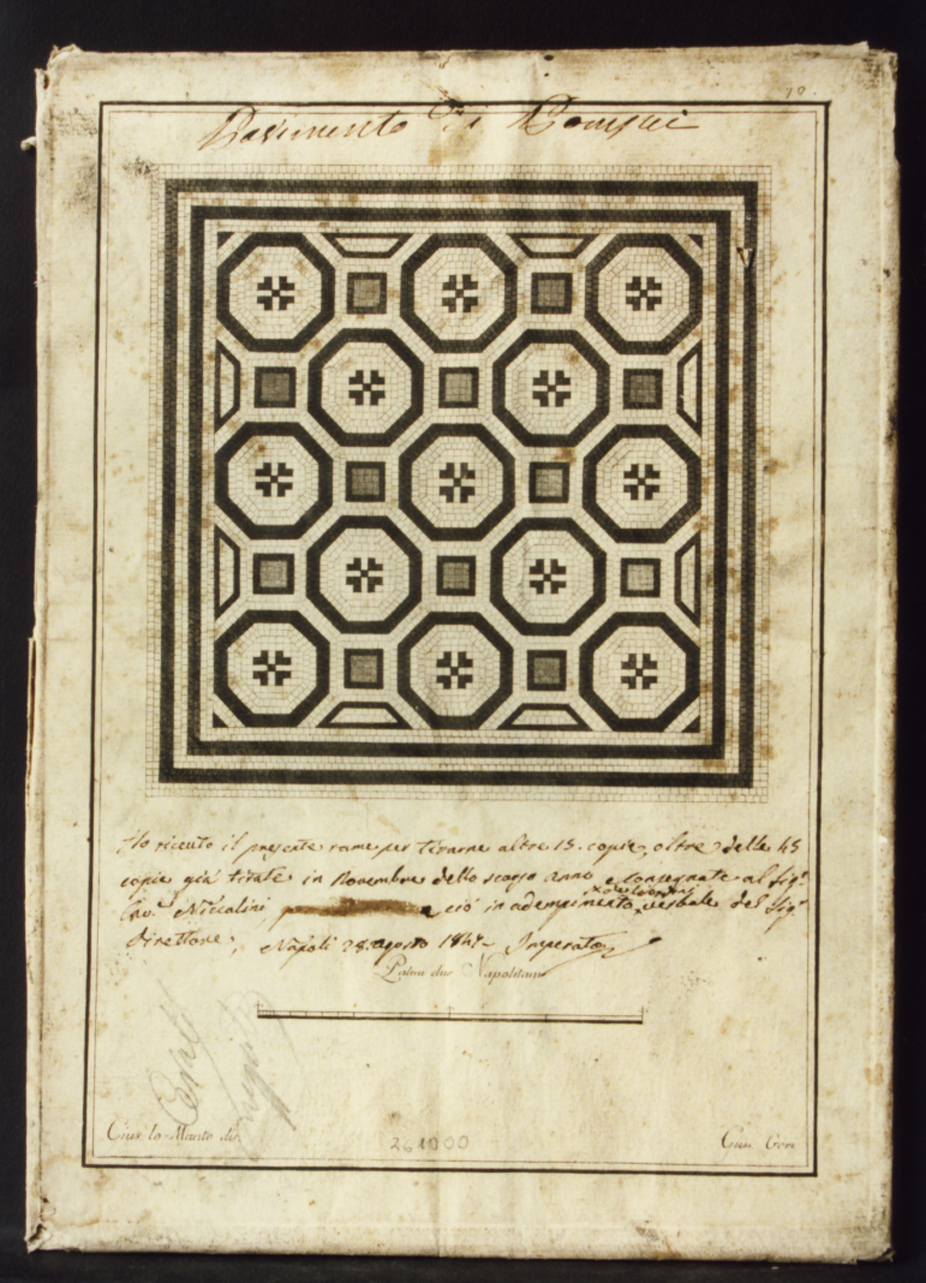 70.
Pavimento di Pompei
Ho riceuto il presente rame per tirarne altre 15. copie, oltre delle 45
copie già tirate in Novembre dello scorso anno e consegnate al Sigr.
Cav.e Niccolini e ciò in adempimento verbale del Sigr
Direttore, Napoli 28. agosto 1841 - Imperato
Palmi due Napolitani
Gius. lo Manto dis.
261000
Gius. Gori